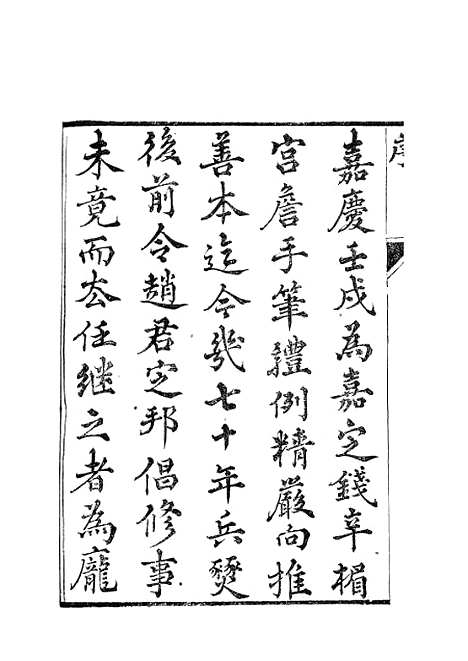 嘉慶壬戌為嘉定錢辛楣
宫詹手筆體例精嚴向推
善本迄今幾七十年兵燹
後前令趙君定邦倡修事
未竟而去任繼之者為龐